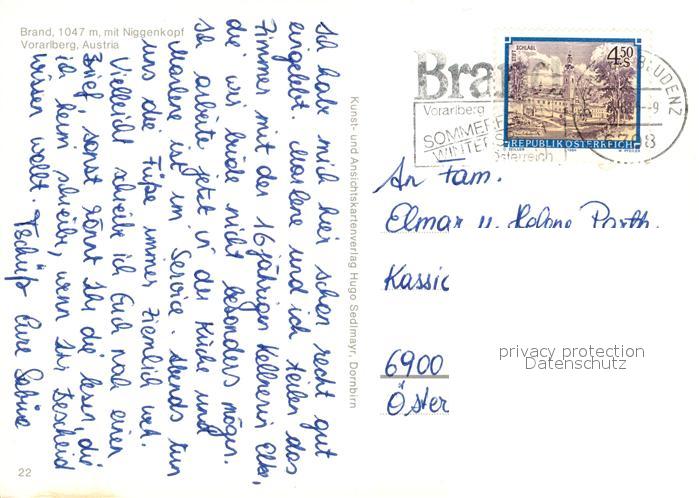 Brand, 1047 m, mit Niggenkopf
Vorarlberg, Austria
Ich habe mich hier schon recht gut
eingelebt. Marlene und ich teilen das
Zimmer mit der 16 jährigen Kellnerin Elke,
die wir beide nicht besonders mögen.
Ich arbeite jetzt in der Küche und
Marlene ist im Service. Abends tun
uns die Füße immer ziemlich weh.
Vielleicht schreibe ich Euch noch einen
Brief, sonst könnt Ihr die lesen, die
ich heim schreibe, wenn Ihr Bescheid
wissen wollt. Tschüß Eure Sabine
22
Kunst- und Ansichtskartenverlag Hugo Sedlmayr, Dornbirn
STIFT SCHLÄGL
4.50
S
REPUBLIK ÖSTERREICH
Bran
Vorarlberg
SOMMER
WINTER
Österreich
BLUDENZ
-9
An Fam.
Elmar u. Helene Parth
Kassic
6900
Öster
privacy protection
Datenschutz